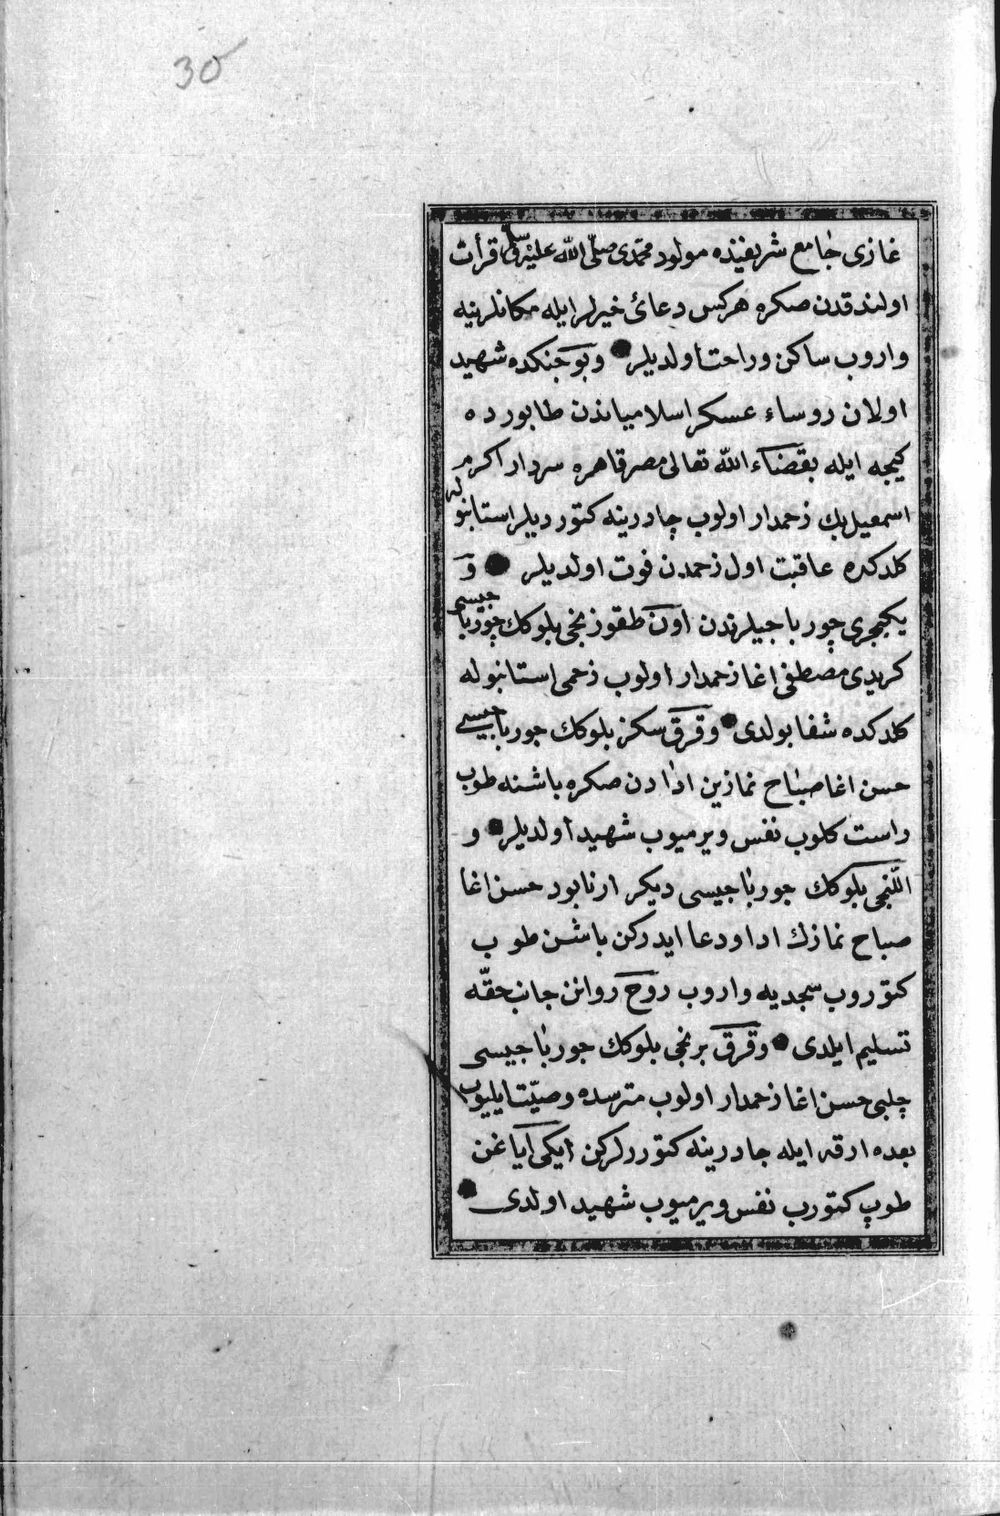 30
غازی جامع شریفنده مولود محمدی صلّی اللّه علیه وسلم قرأت
اولندقدن صکره هرکس دعائ خیرلر ایله مکانلرینه
واروب ساکن و راحت اولدیلر ● و بو جنکده شهید
اولان روساء عسکر اسلامیاندن طابورده
کیجه ایله بقضاء اللّه تعالی مصر قاهره سردار اکرم
اسمعیل بك زحمدار اولوب چادرینه کتوردیلر استانبوله
کلدکده عاقبت اول زحمدن فوت اولدیلر ● و
یکیچری چورباجیلرندن اون طقوزنجی بلوکك چورباجیسی
کریدی مصطفی اغا زحمدار اولوب زحمی استانبوله
کلدکده شفا بولدی ● و قرق سکز بلوکك جورباجیسی
حسن اغا صباح نمازین ادادن صکره باشنه طوب
راست کلوب نفس ویرمیوب شهید اولدیلر ● و
اللّنجی بلوکك جورباجیسی دیکر ارنابود حسن اغا
صباح نمازك ادا و دعا ایدرکن باشن طوب
کتوروب سجدیه واروب روح روانن جانب حقّه
تسلیم ایلدی ● و قرق برنجی بلوکك جورباجیسی
چلبی حسن اغا زحمدار اولوب مترسده وصیّت ایلیوب
بعده ارقه ایله جادرینه کتوررلرکن ایکی ایاغن
طوپ کتورب نفس ویرمیوب شهید اولدی ●